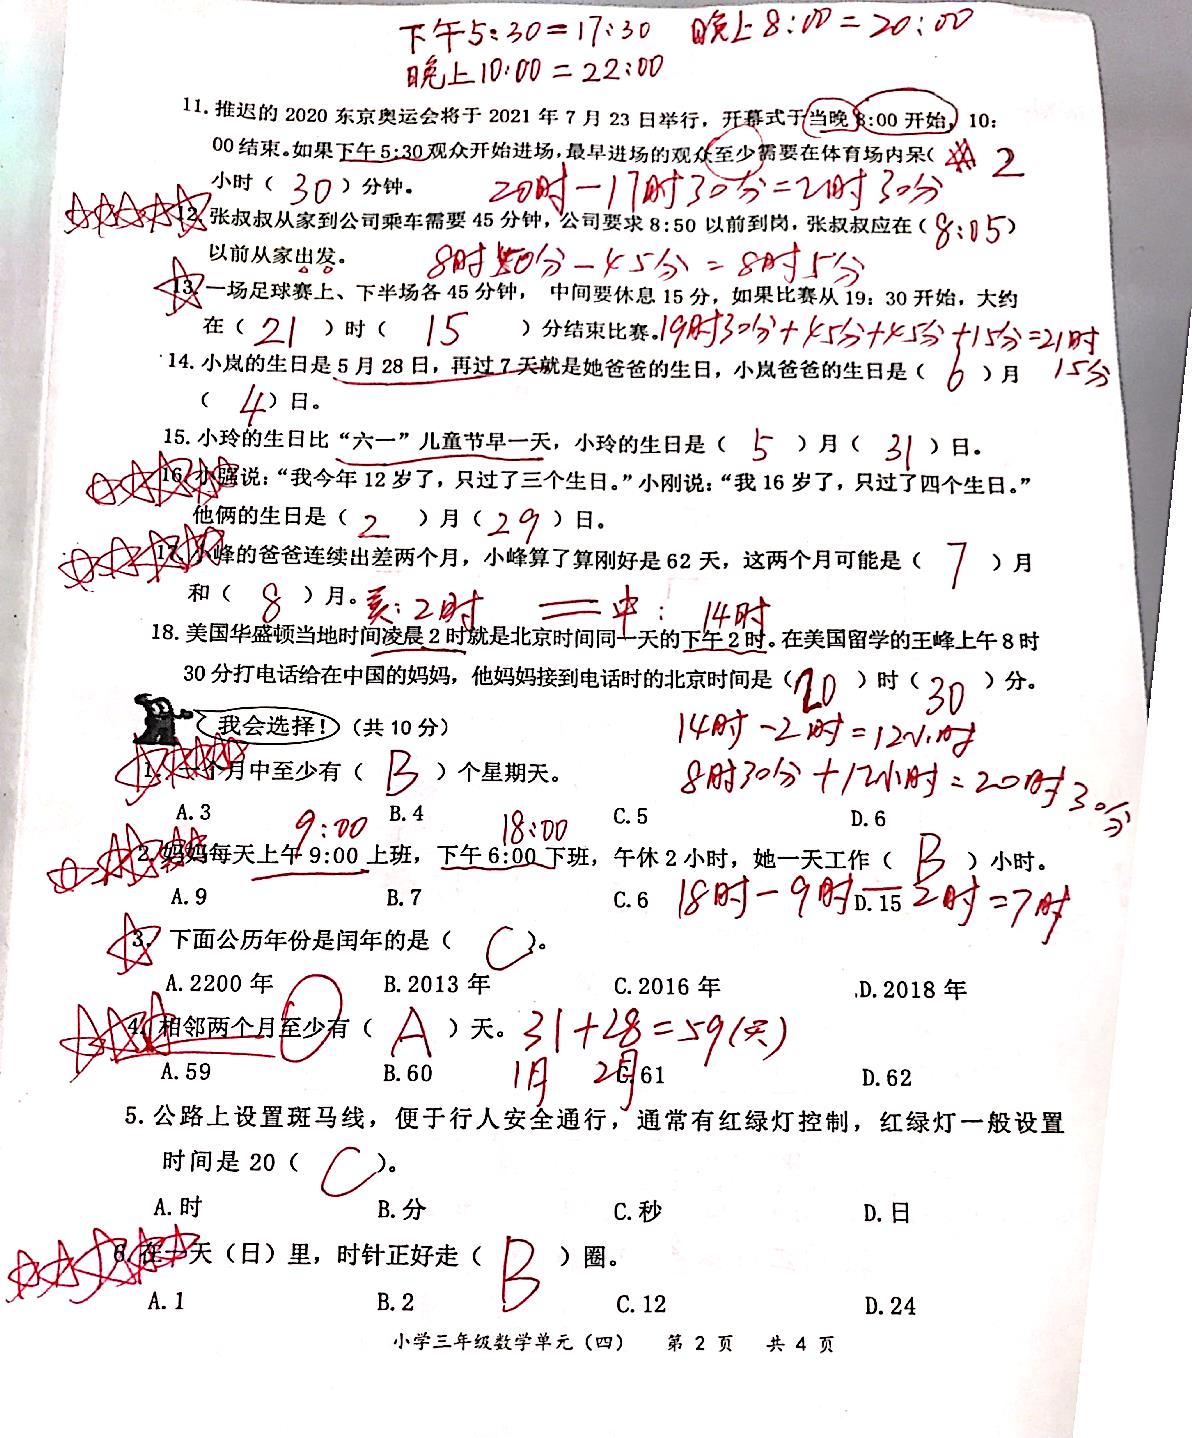 下午5:30=17:30 晚上8:00=20:00
晚上10:00=22:00
11. 推迟的 2020 东京奥运会将于 2021 年 7 月 23 日举行，开幕式于当晚 8:00 开始，10:
00 结束。如果下午 5:30 观众开始进场，最早进场的观众至少需要在体育场内呆( 2
小时（ 30 ）分钟。 20时-17时30分=2时30分
12. 张叔叔从家到公司乘车需要 45 分钟，公司要求 8:50 以前到岗，张叔叔应在（8:05）
以前从家出发。 8时50分-45分=8时5分
13. 一场足球赛上、下半场各 45 分钟， 中间要休息 15 分，如果比赛从 19：30 开始，大约
在（ 21 ）时（ 15 ）分结束比赛。19时30分+45分+45分+15分=21时
15分
14. 小岚的生日是 5 月 28 日，再过 7 天就是她爸爸的生日，小岚爸爸的生日是（ 6 ）月
（ 4 ）日。
15. 小玲的生日比“六一”儿童节早一天，小玲的生日是（ 5 ）月（ 31 ）日。
16. 小强说：“我今年 12 岁了，只过了三个生日。”小刚说：“我 16 岁了，只过了四个生日。”
他俩的生日是（ 2 ）月（ 29 ）日。
17. 小峰的爸爸连续出差两个月，小峰算了算刚好是 62 天，这两个月可能是（ 7 ）月
和（ 8 ）月。美：2时 = 中： 14时
18. 美国华盛顿当地时间凌晨 2 时就是北京时间同一天的下午 2 时。在美国留学的王峰上午 8 时
30 分打电话给在中国的妈妈，他妈妈接到电话时的北京时间是（20 ）时（ 30 ）分。
我会选择！（共 10 分） 14时-2时=12小时
1. 一个月中至少有（ B ）个星期天。 8时30分+12小时=20时30分
A. 3 B. 4 C. 5 D. 6
9:00 18:00
2. 妈妈每天上午 9:00 上班，下午 6:00 下班，午休 2 小时，她一天工作（ B ）小时。
A. 9 B. 7 C. 6 D. 15 18时-9时-2时=7时
3. 下面公历年份是闰年的是（ C ）。
A. 2200 年 B. 2013 年 C. 2016 年 D. 2018 年
4. 相邻两个月至少有（ A ）天。 31+28=59(天)
1月 2月
A. 59 B. 60 C. 61 D. 62
5. 公路上设置斑马线，便于行人安全通行，通常有红绿灯控制，红绿灯一般设置
时间是 20（ C ）。
A. 时 B. 分 C. 秒 D. 日
6. 在一天（日）里，时针正好走（ B ）圈。
A. 1 B. 2 C. 12 D. 24
小学三年级数学单元（四） 第 2 页 共 4 页